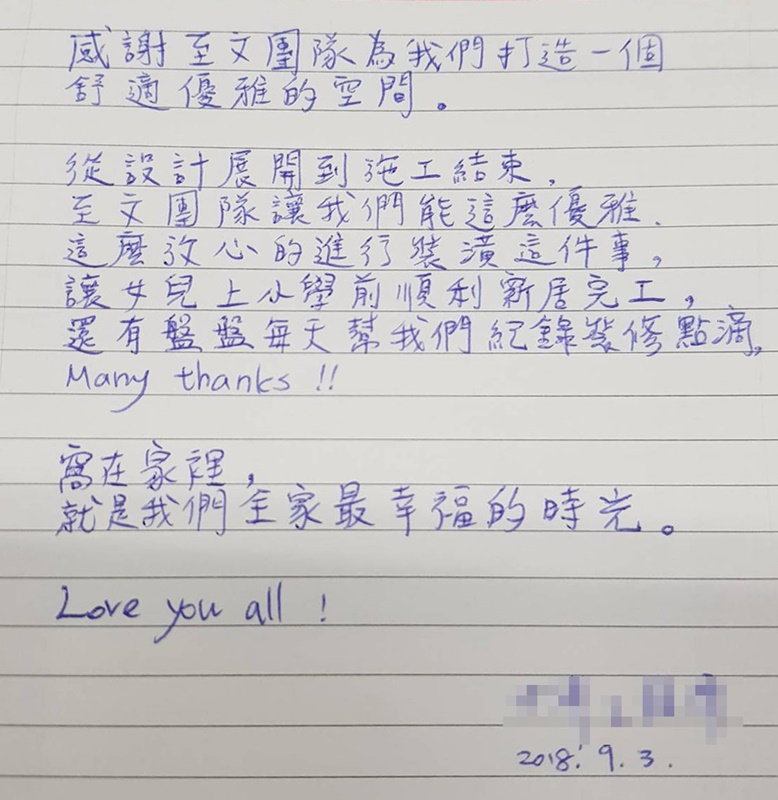 感謝至文團隊為我們打造一個
舒適優雅的空間。
從設計展開到施工結束,
至文團隊讓我們能這麼優雅、
這麼放心的進行裝潢這件事,
讓女兒上小學前順利新居完工,
還有盤盤每天幫我們紀錄裝修點滴,
Many thanks !!
窩在家裡,
就是我們全家最幸福的時光。
Love you all !
2018. 9. 3.